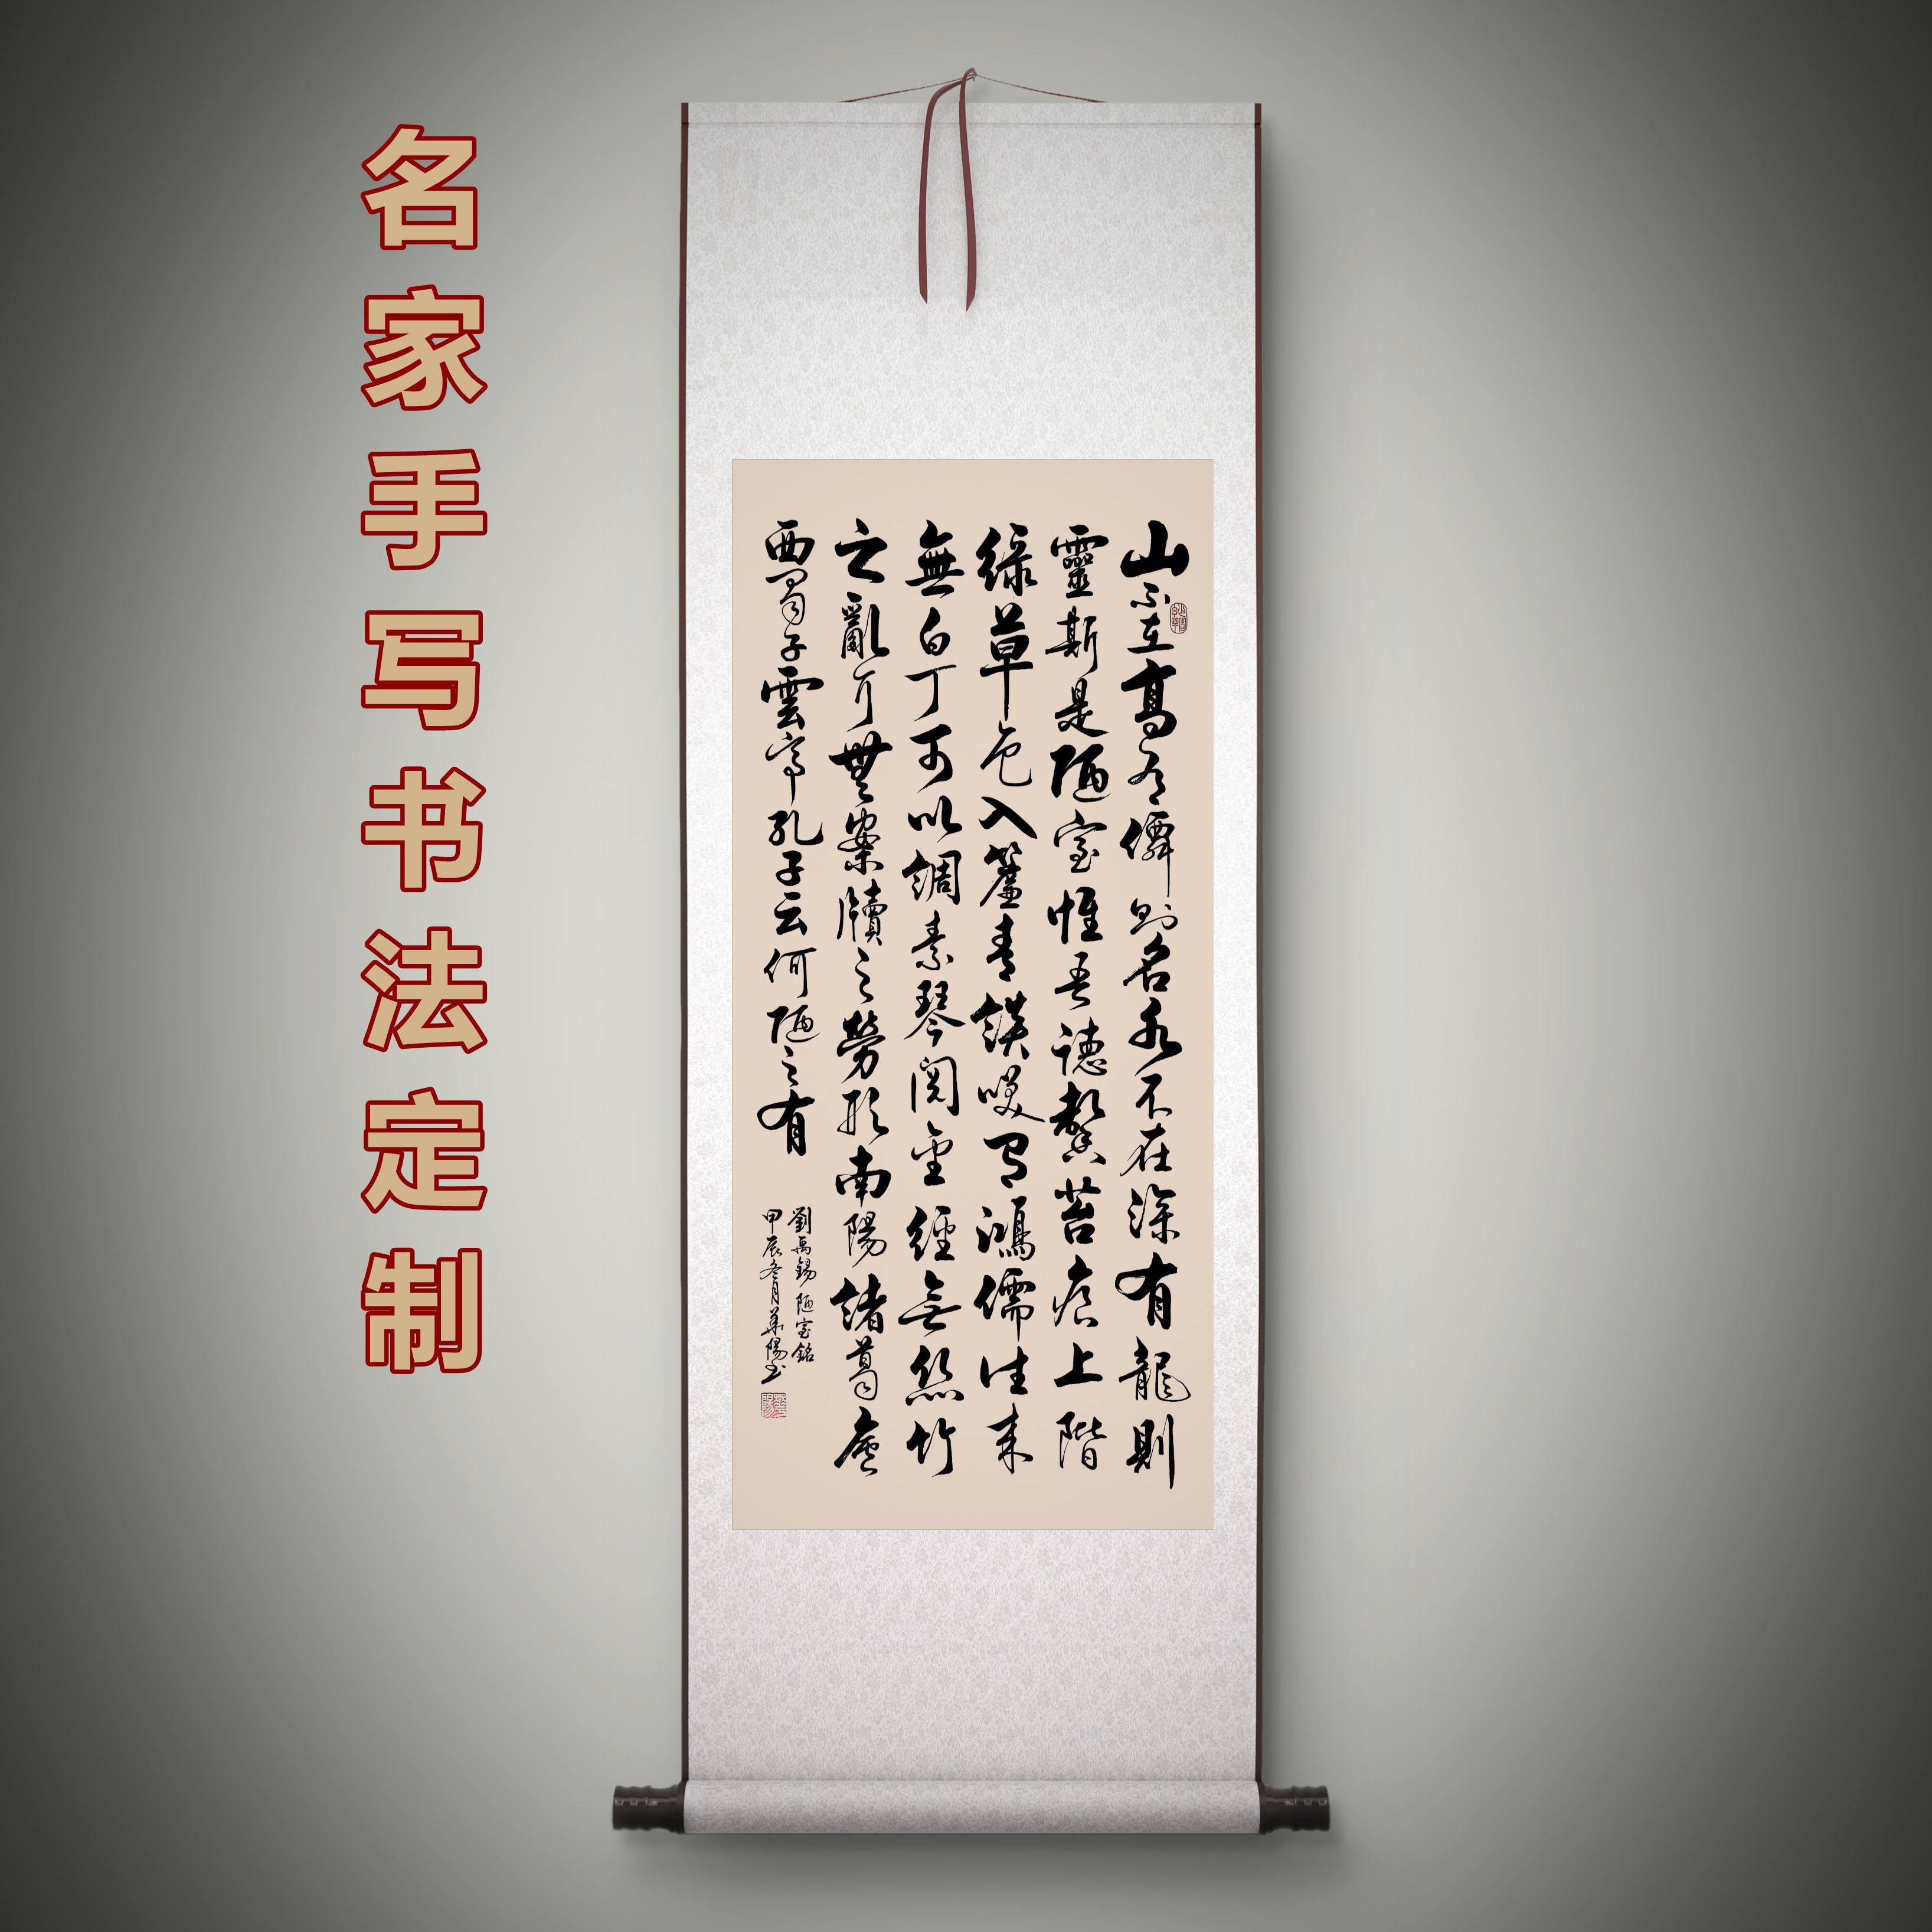 名家手写书法定制
山不在高有僊則名水不在深有龍則
靈斯是陋室惟吾德馨苔痕上階
綠草色入簾青談咲有鴻儒往来
無白丁可以調素琴閱金經無絲竹
之亂耳無案牘之勞形南陽諸葛廬
西蜀子雲亭孔子云何陋之有
劉禹錫陋室銘
甲辰冬月華陽书